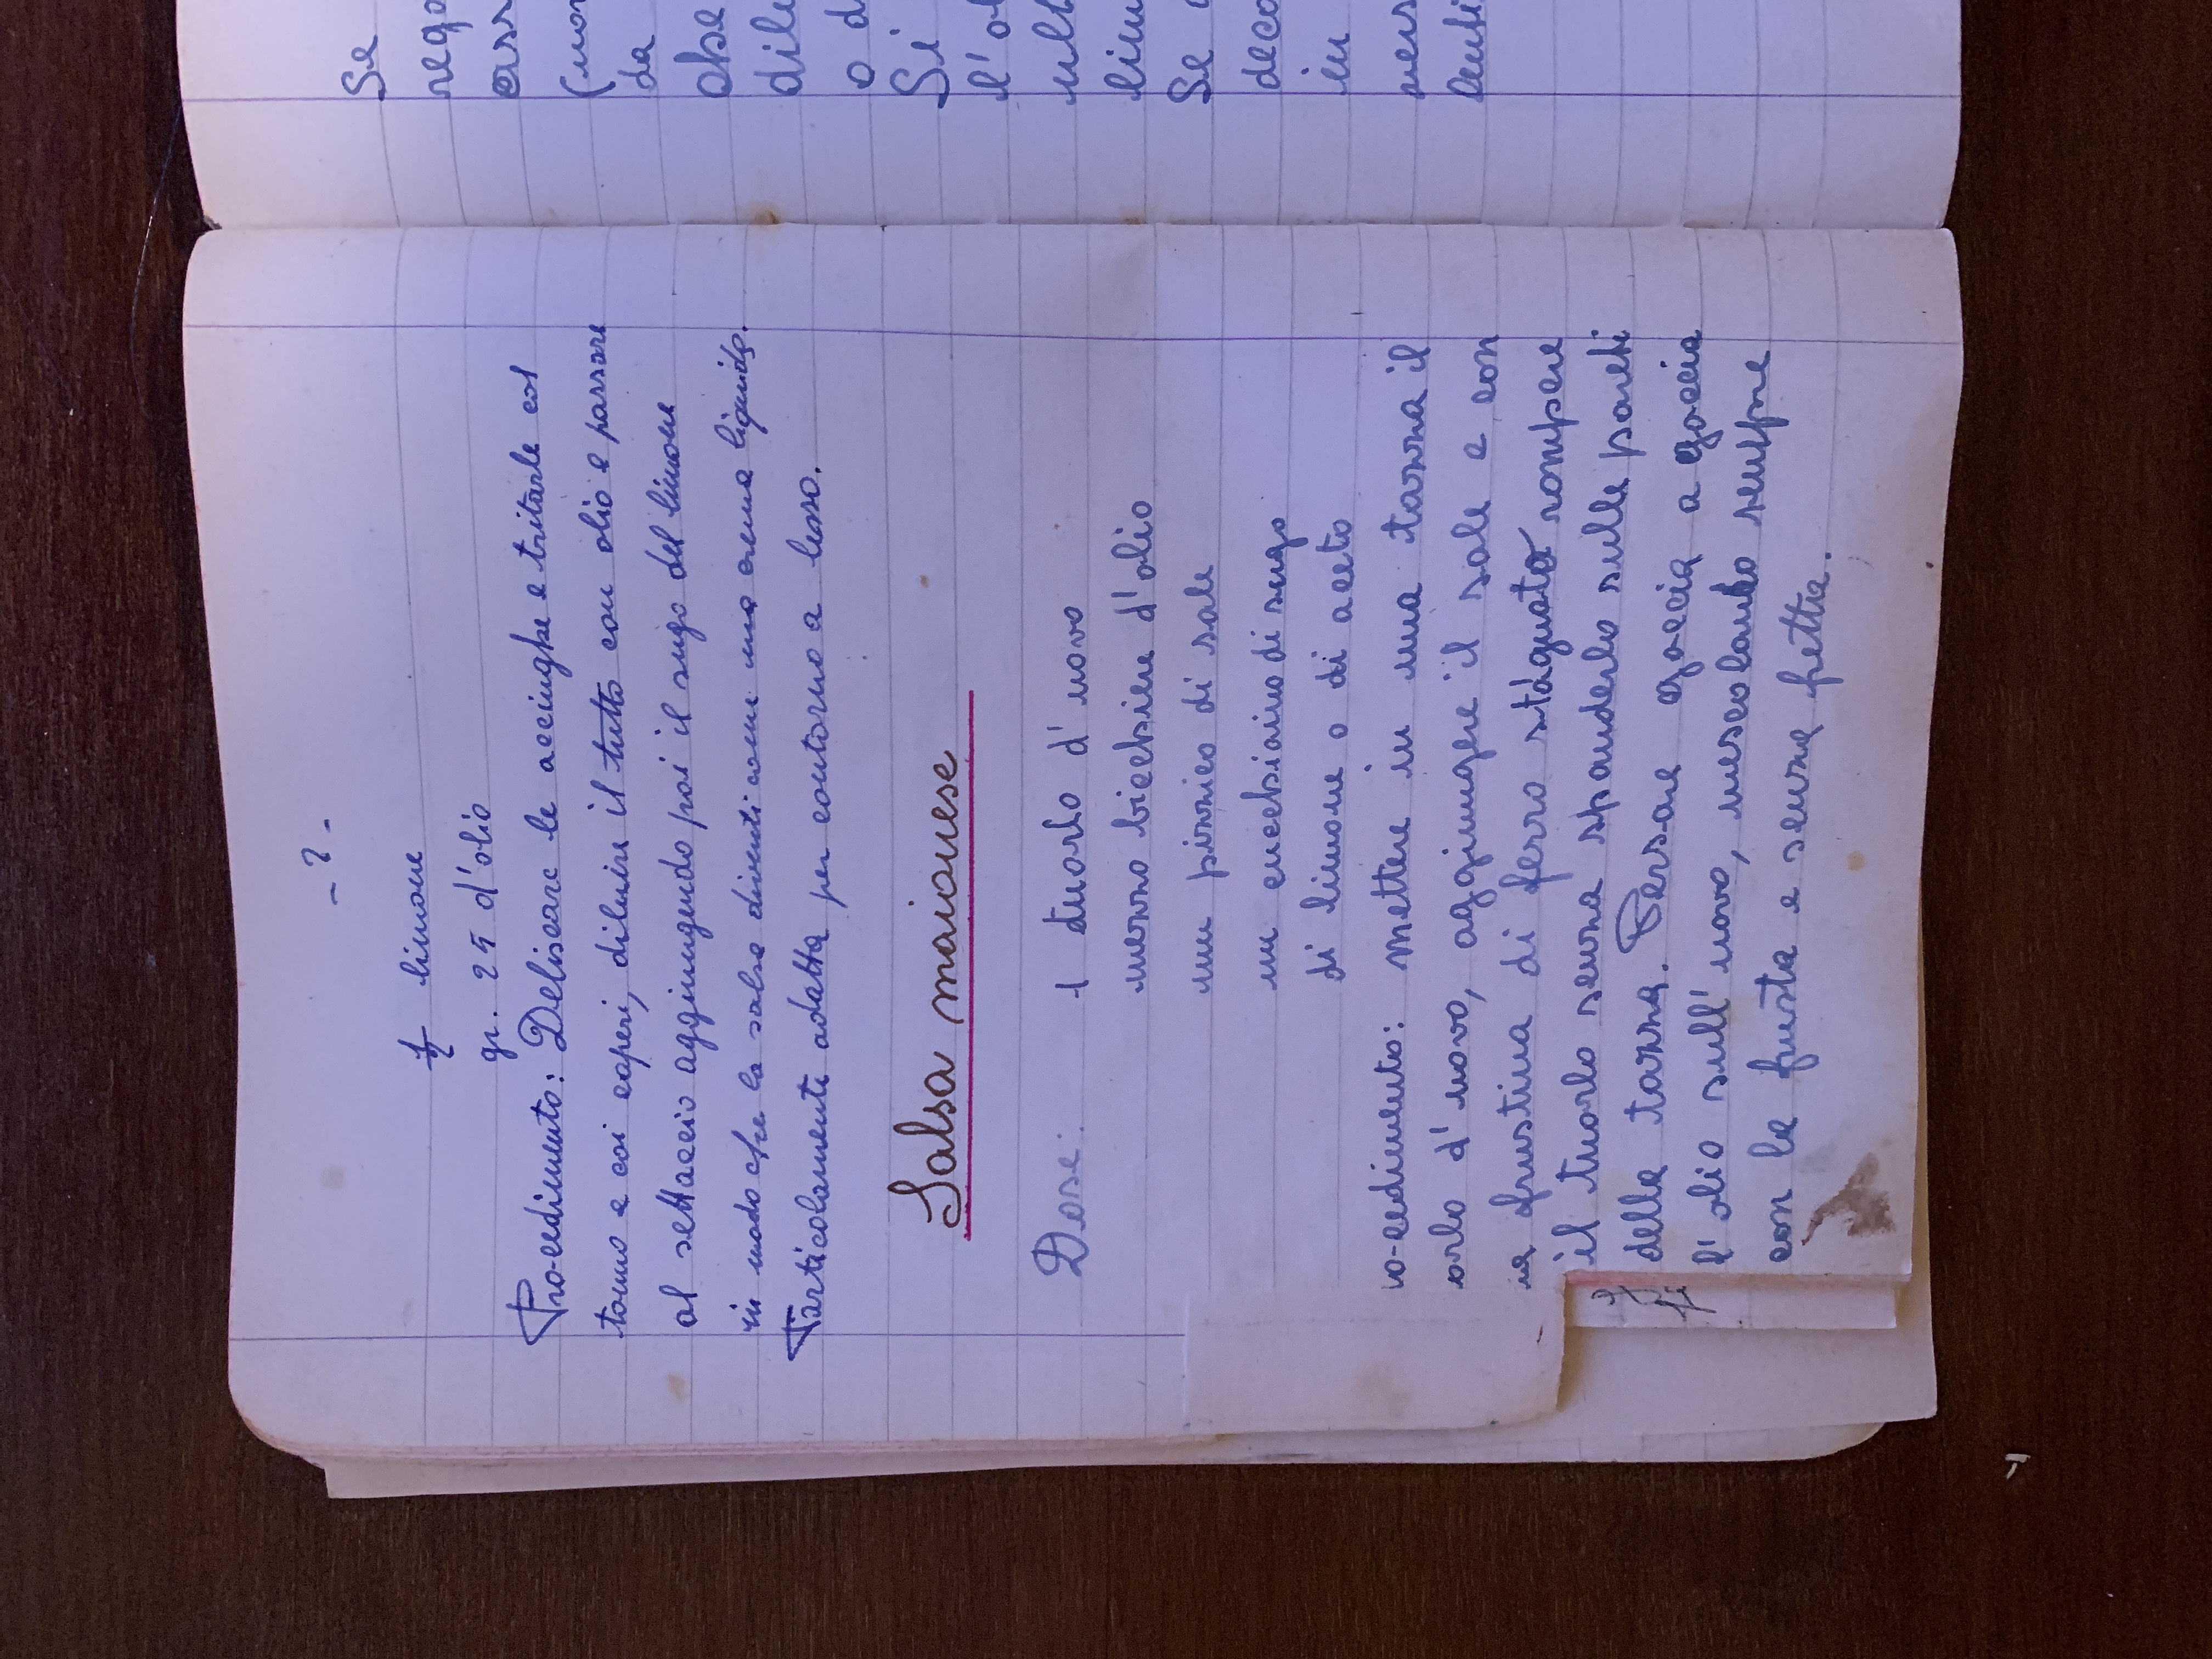 - 2 -
1/2 limone
gr. 25 d'olio
Pro-cedimento: Deliscare le acciughe e tritarle col
tonno e coi caperi, diluire il tutto con olio e passare
al settaccio aggiungendo poi il sugo del limone
in modo che la salsa diventi come una crema liquida.
Particolamente adatta per contorno a lesso.
Salsa maionese
Dose: 1 tuorlo d'uovo
mezzo bicchiere d'olio
un pizzico di sale
un cucchiaino di sugo
di limone o di aceto
o-cedimento: mettere in una tazza il
orlo d'uovo, aggiungere il sale e con
na frustina di ferro stagnato rompere
il tuorlo senza spanderlo sulle pareti
della tazza. Versare goccia a goccia
l'olio sull'uovo, mescolando sempre
con la frusta e senza fretta.
Se
rego
ass
(non
da
che
dilu
o d
Si
l'ol
ult
lim
Se
deco
in
vers
lenti